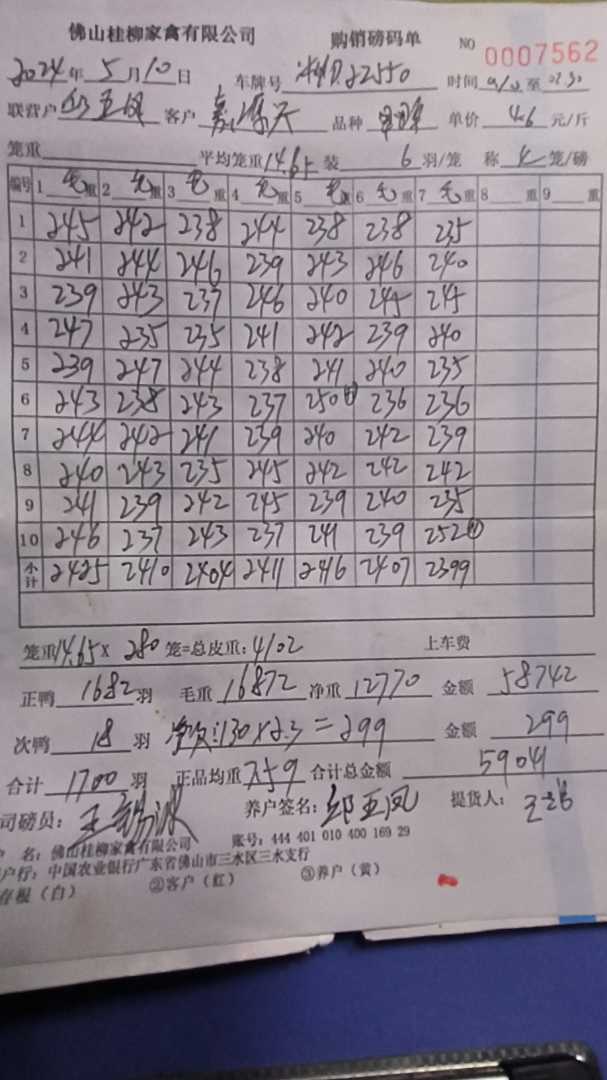 佛山桂柳家禽有限公司 购销磅码单 NO 0007562
2024年5月10日 车牌号 时间 至 02:30
联营户 客户 品种 单价 4.6 元/斤
笼重 平均笼重 14.65 装 6 羽/笼 称 4 笼/磅
编号 1 毛重 2 毛重 3 毛重 4 毛重 5 毛重 6 毛重 7 毛重 8 重 9 重
1 245 242 238 244 238 238 235
2 241 244 246 239 243 246 240
3 239 243 237 246 240 245 245
4 247 235 235 241 242 239 240
5 239 247 244 238 241 240 235
6 243 238 243 237 250 236 236
7 244 242 241 239 240 242 239
8 240 243 235 245 242 242 242
9 241 239 242 245 239 240 235
10 246 237 243 237 241 239 252
小计 2425 2410 2404 2411 2416 2407 2399
笼重14.65× 280 笼=总皮重:4102 上车费
正鸭 1682 羽 毛重 16872 净重 12770 金额 58742
次鸭 18 羽 净次:130×2.3=299 金额 299
合计 1700 羽 正品均重 7.59 合计总金额 59041
司磅员: 王锡波 养户签名: 邹亚凤 提货人:
户 名: 佛山桂柳家禽有限公司 账号: 444 401 010 400 169 29
户行: 中国农业银行广东省佛山市三水区三水支行
存根(白) ②客户(红) ③养户(黄)